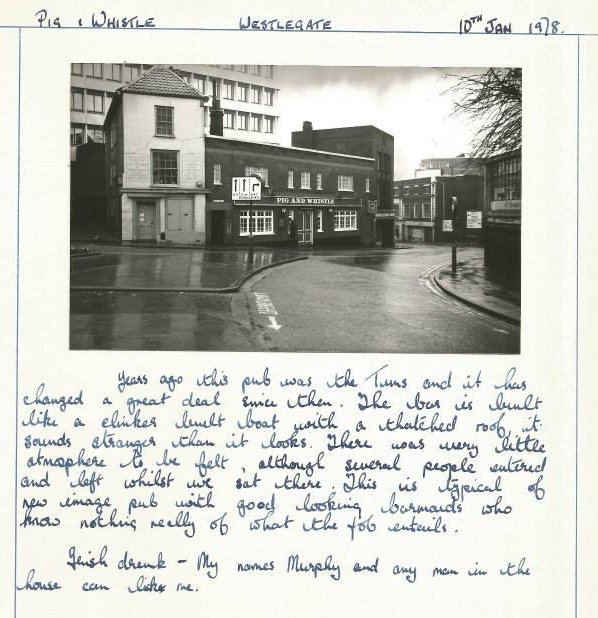 PIG & WHISTLE WESTLEGATE 10TH JAN 1978.
PIG AND WHISTLE
Years ago this pub was the Tuns and it has
changed a great deal since then. The bar is built
like a clinker built boat with a thatched roof, it
sounds stranger than it looks. There was very little
atmosphere to be felt, although several people entered
and left whilst we sat there. This is typical of
new image pub with good looking barmaids who
know nothing really of what the job entails.
Irish drunk - My names Murphy and any man in the
house can lick me.